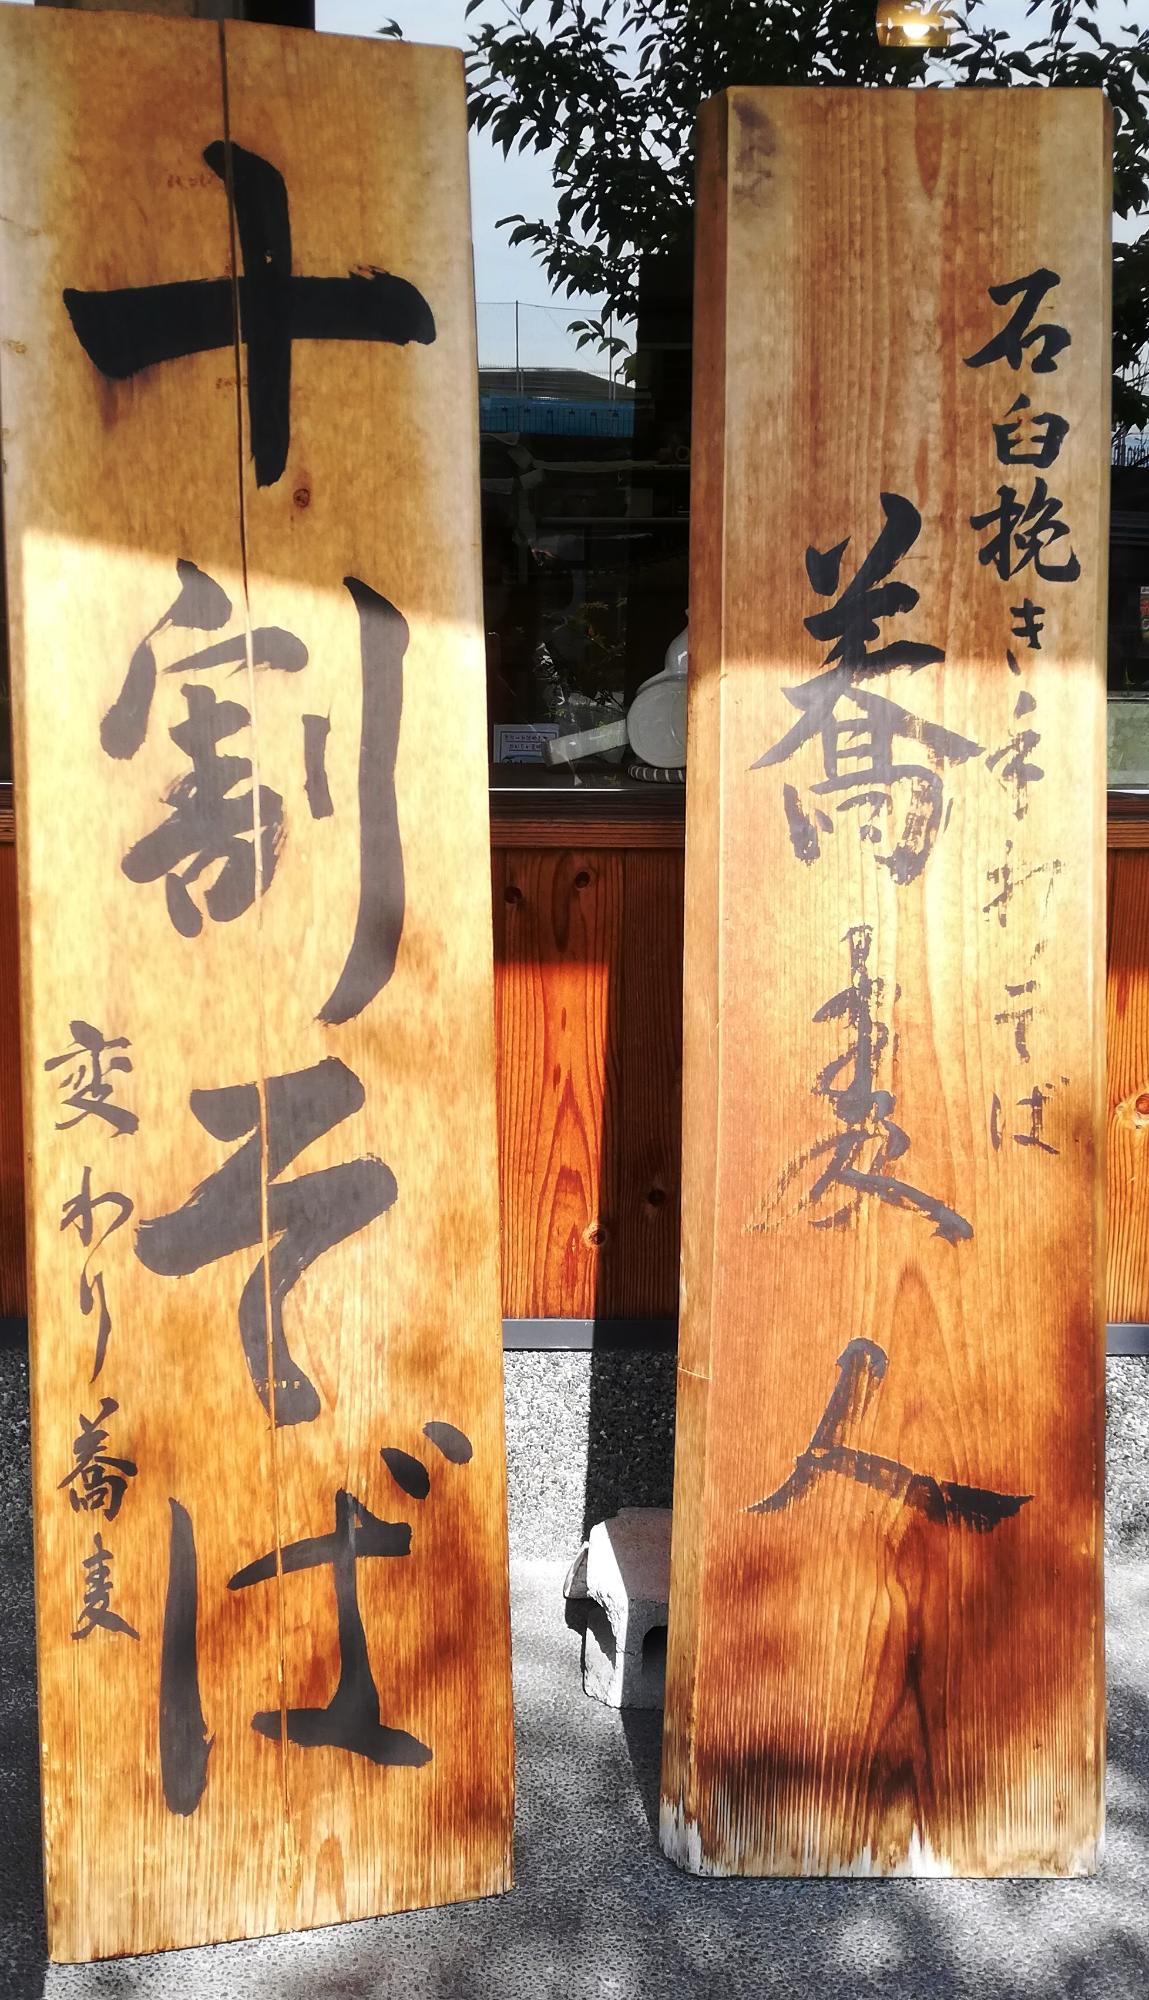 石臼挽き手打ちそば
蕎麦人
十割そば
変わり蕎麦